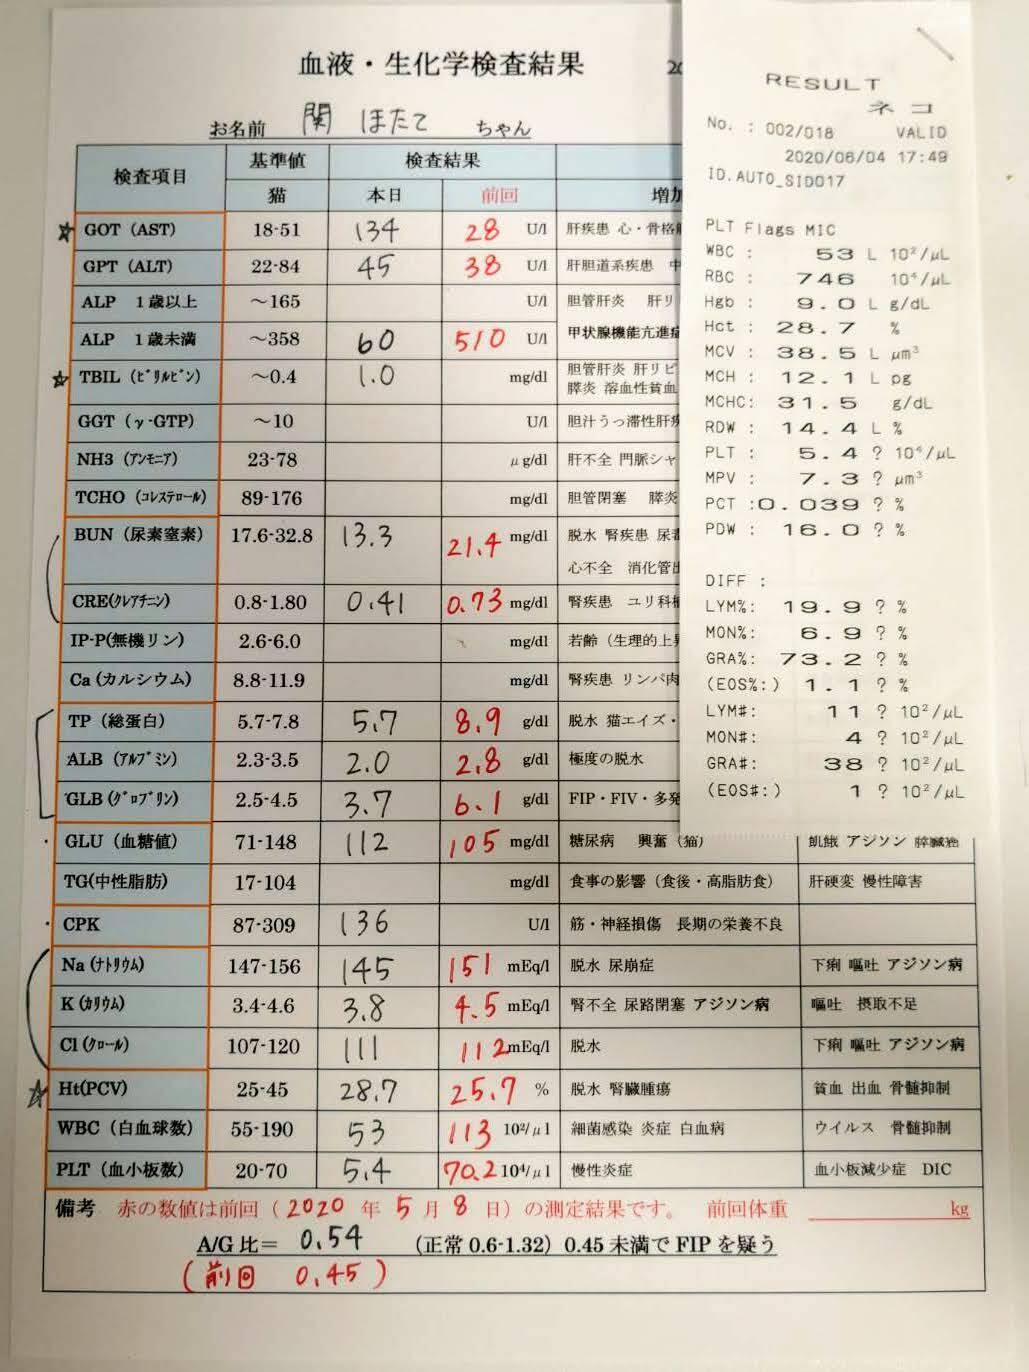 血液・生化学検査結果
お名前 関 ほたて ちゃん
検査項目 基準値 検査結果
猫 本日 前回
☆ GOT (AST) 18-51 134 28 U/l 肝疾患 心・骨格
GPT (ALT) 22-84 45 38 U/l 肝胆道系疾患
ALP 1歳以上 ~165 U/l 胆管肝炎
ALP 1歳未満 ~358 60 510 U/l 甲状腺機能亢進
☆ TBIL (ビリルビン) ~0.4 1.0 mg/dl 胆管肝炎 肝リピ
膵炎 溶血性貧血
GGT (γ-GTP) ~10 U/l 胆汁うっ滞性肝
NH3 (アンモニア) 23-78 μg/dl 肝不全 門脈シャ
TCHO (コレステロール) 89-176 mg/dl 胆管閉塞 膵炎
BUN (尿素窒素) 17.6-32.8 13.3 21.4 mg/dl 脱水 腎疾患
心不全 消化管
CRE(クレアチニン) 0.8-1.80 0.41 0.73 mg/dl 腎疾患
IP-P(無機リン) 2.6-6.0 mg/dl 若齢(生理的上
Ca (カルシウム) 8.8-11.9 mg/dl 腎疾患 リンパ肉
TP (総蛋白) 5.7-7.8 5.7 8.9 g/dl 脱水 猫エイズ・
ALB (アルブミン) 2.3-3.5 2.0 2.8 g/dl 極度の脱水
GLB (グロブリン) 2.5-4.5 3.7 6.1 g/dl FIP・FIV・多発
GLU (血糖値) 71-148 112 105 mg/dl 糖尿病 興奮(猫) 飢餓 アジソン 膵臓癌
TG(中性脂肪) 17-104 mg/dl 食事の影響(食後・高脂肪食) 肝硬変 慢性障害
CPK 87-309 136 U/l 筋・神経損傷 長期の栄養不良
Na (ナトリウム) 147-156 145 151 mEq/l 脱水 尿崩症 下痢 嘔吐 アジソン病
K (カリウム) 3.4-4.6 3.8 4.5 mEq/l 腎不全 尿路閉塞 アジソン病 嘔吐 摂取不足
Cl (クロール) 107-120 111 112 mEq/l 脱水 下痢 嘔吐 アジソン病
☆ Ht(PCV) 25-45 28.7 25.7 % 脱水 腎臓腫瘍 貧血 出血 骨髄抑制
WBC (白血球数) 55-190 53 113 10²/μl 細菌感染 炎症 白血病 ウイルス 骨髄抑制
PLT (血小板数) 20-70 5.4 70.2 10⁴/μl 慢性炎症 血小板減少症 DIC
備考 赤の数値は前回(2020 年 5 月 8 日)の測定結果です。 前回体重 kg
A/G 比= 0.54 (正常 0.6-1.32) 0.45 未満で FIP を疑う
(前回 0.45)
RESULT
ネコ
No. : 002/018 VALID
2020/06/04 17:49
ID.AUTO_SID017
PLT Flags MIC
WBC : 53 L 10²/μL
RBC : 746 10⁴/μL
Hgb : 9.0 L g/dL
Hct : 28.7 %
MCV : 38.5 L μm³
MCH : 12.1 L pg
MCHC: 31.5 g/dL
RDW : 14.4 L %
PLT : 5.4 ? 10⁴/μL
MPV : 7.3 ? μm³
PCT :0.039 ? %
PDW : 16.0 ? %
DIFF :
LYM%: 19.9 ? %
MON%: 6.9 ? %
GRA%: 73.2 ? %
(EOS%:) 1.1 ? %
LYM#: 11 ? 10²/μL
MON#: 4 ? 10²/μL
GRA#: 38 ? 10²/μL
(EOS#:) 1 ? 10²/μL